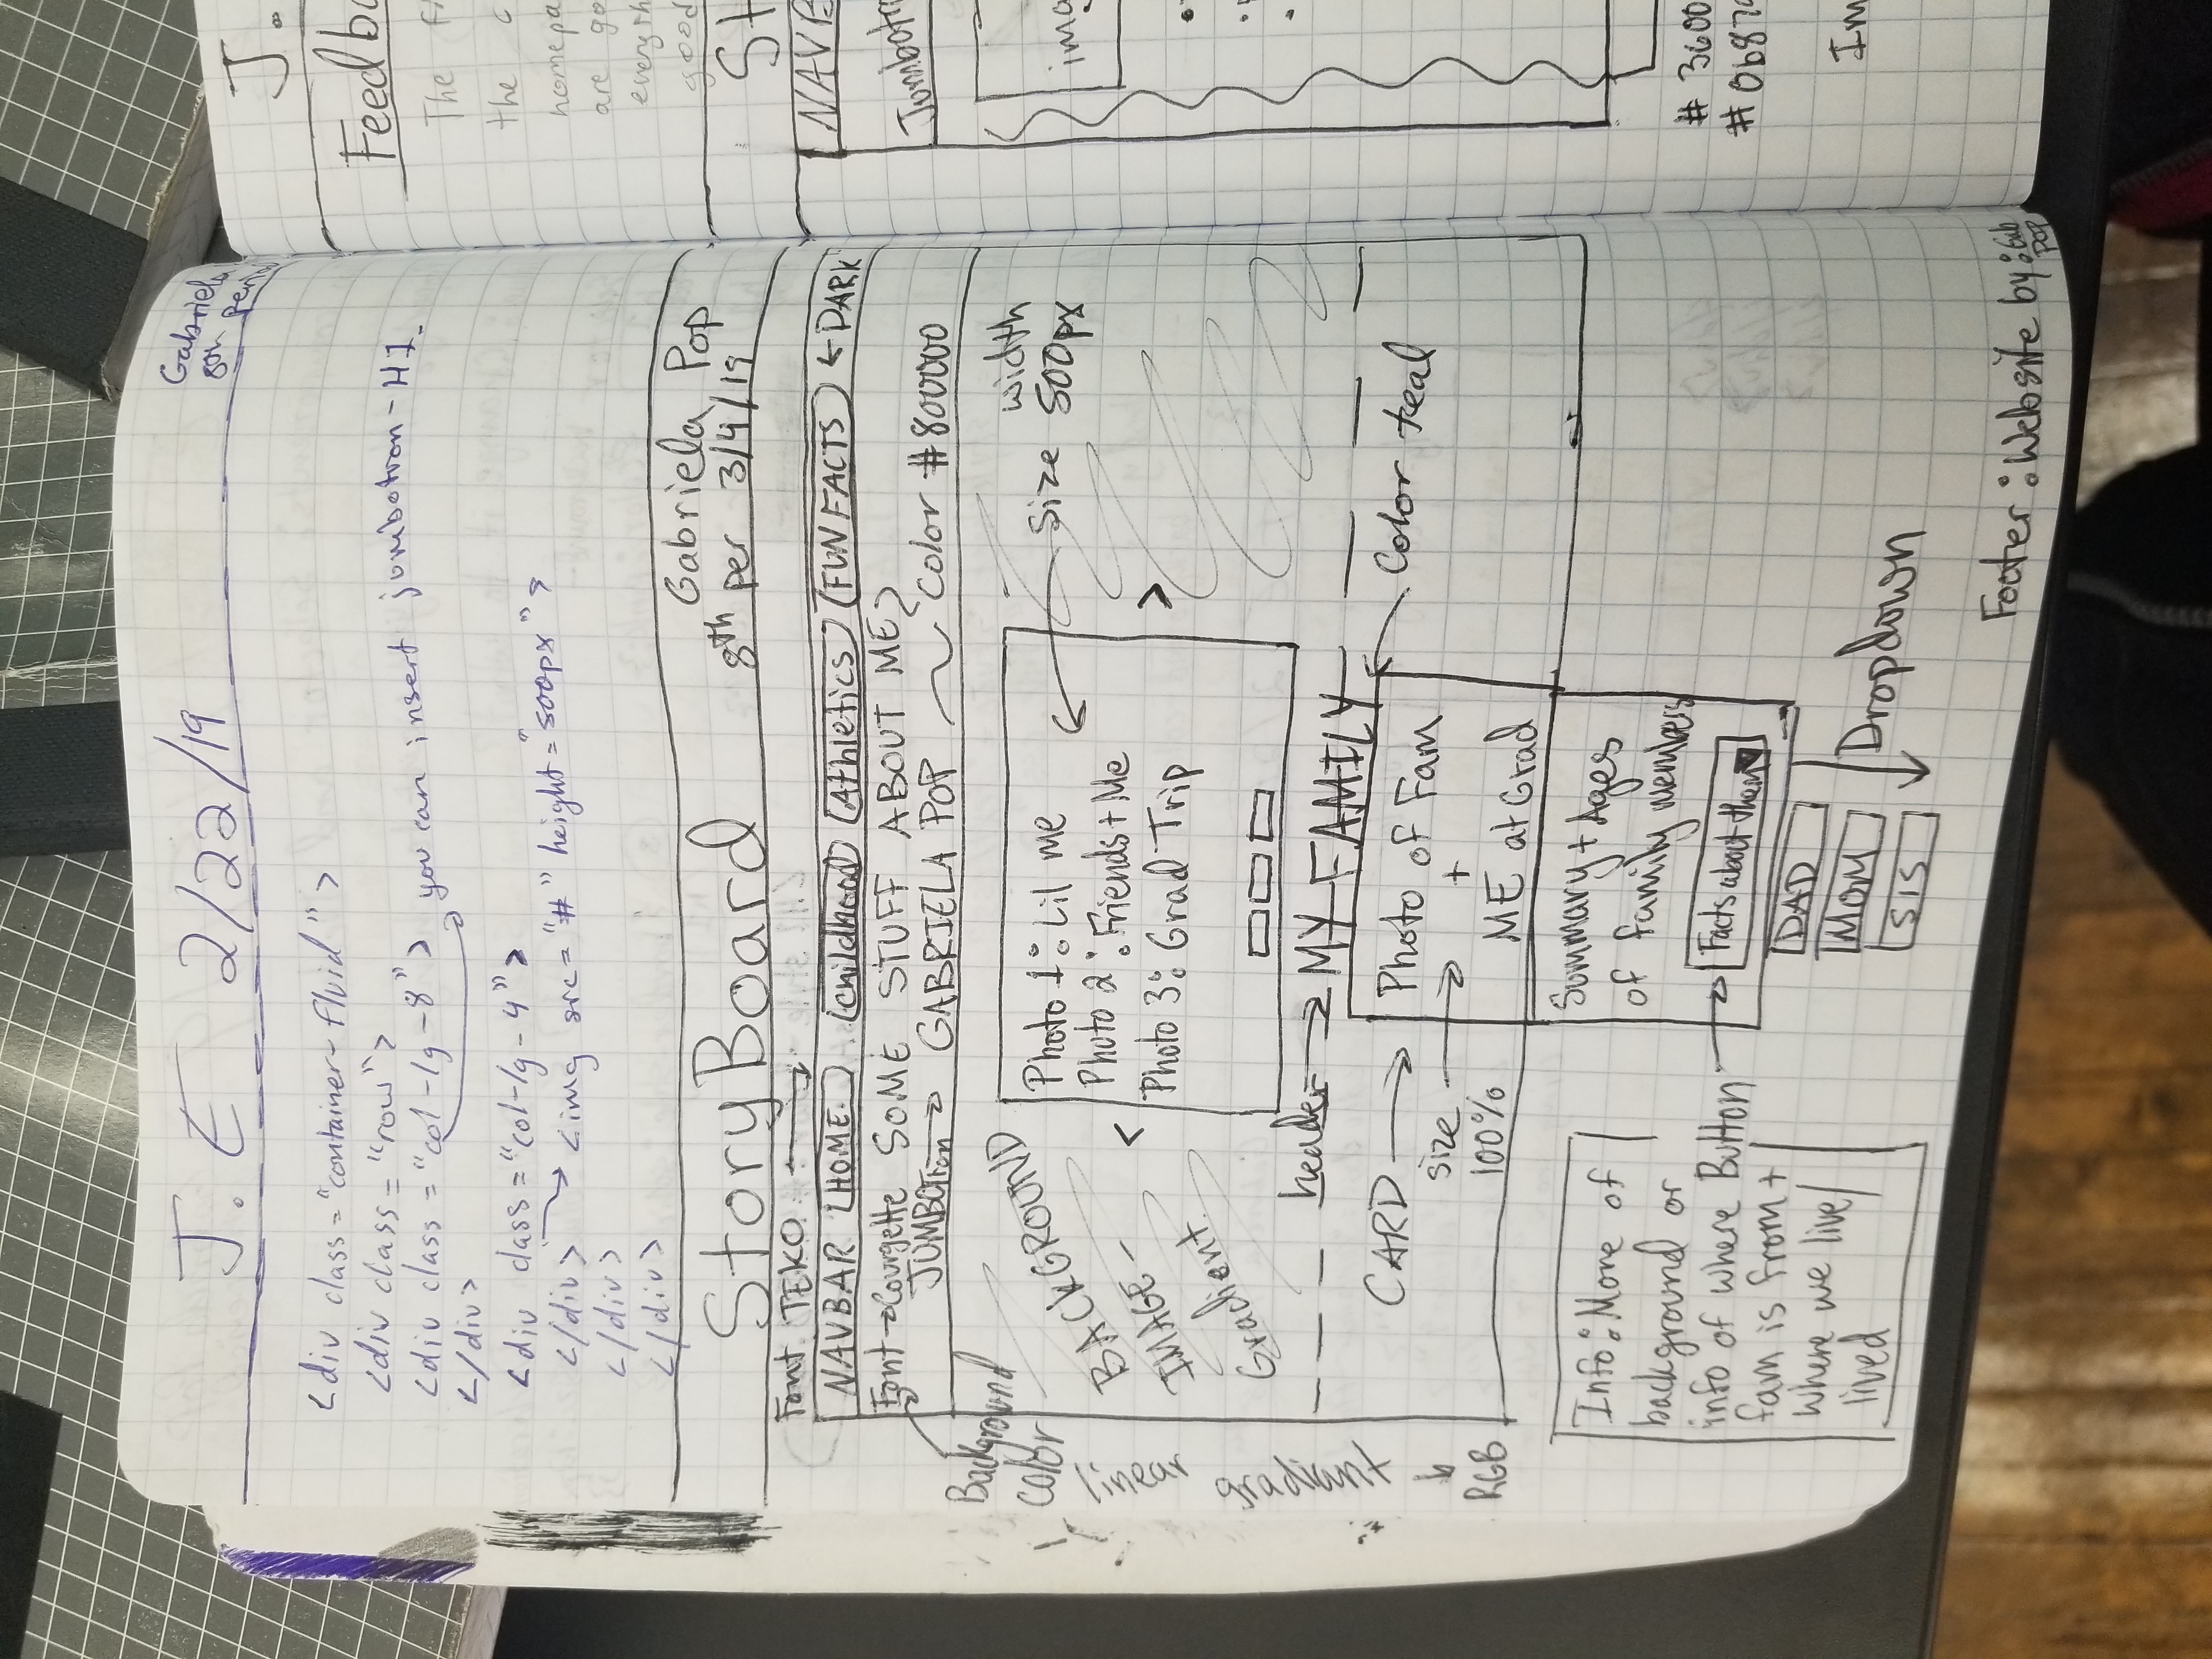 J. E 2/22/19
Gabriela
8th period
<div class="container-fluid">
<div class="row">
<div class="col-lg-8"> you can insert jumbotron-H1.
</div>
<div class="col-lg-4">
</div> <img src="#" height="500px">
</div>
</div>
StoryBoard
Gabriela Pop
8th per 3/4/19
Font TEKO
NAVBAR HOME childhood Athletics FUN FACTS ← DARK
Font → Courgette SOME STUFF ABOUT ME
JUMBOTron → GABRIELA POP Color #800000
Background
color
linear
gradiant
RGB
BACKGROUND
IMAGE -
Gradient.
<
Photo 1: Lil me
Photo 2: Friends + Me
Photo 3: Grad Trip
>
width
size 500px
header → MY FAMILY
CARD →
size →
100%
Photo of Fam
+
ME at Grad
Color teal
Summary + Ages
of family members
Button → Facts about them
DAD
MOM
SIS
Dropdown
Info: More of
background or
info of where
fam is from +
where we live/
lived
Footer: Website by: Gab
POP
J.
Feedba
The
the c
homepa
are go
everyth
good
St
NAVB
Jumbotr
img
# 3600
# 0b87
Im